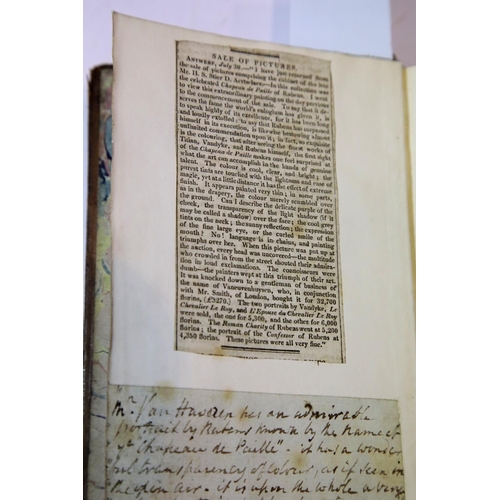 SALE OF PICTURES.
ANTWERP, July 30.—"I have just returned from
the sale of pictures comprising the cabinet of the late
Mr. H. S. Stier D. Aertselaer.—In this collection was
the celebrated Chapeau de Paille of Rubens. I went
to view this extraordinary painting on the day previous
to the commencement of the sale. To say that it de-
serves the fame the world's eulogium has given it, is
to speak highly of its excellence, for it has been long
and loudly extolled; to say that Rubens has surpassed
himself in its execution, is likewise bestowing almost
unlimited commendation upon it; in fact, so exquisite
is the colouring, that after seeing the finest works of
Titian, Vandyke, and Rubens himself, the first sight
of the Chapeau de Paille makes one feel surprised at
what the art can accomplish in the hands of genuine
talent. The colour is cool, clear, and bright; the
purest tints are touched with the lightness and ease of
magic, yet at a little distance it has the effect of extreme
finish. It appears painted very thin; in some parts,
as in the drapery, the colour merely scumbled over
the ground. Can I describe the delicate purple of the
cheek, the transparency of the light shadow (if it
may be called a shadow) over the face; the cool grey
tints on the neck; the sunny reflection; the expression
of the fine large eye, or the curled smile of the
mouth? No! language is in chains, and painting
triumphs over her. When this picture was put up at
the auction, every head was uncovered—the multitude
who crowded in from the street shouted their admira-
tion in loud exclamations. The connoisseurs were
dumb—the painters wept at this triumph of their art.
It was knocked down to a gentleman of business of
the name of Vanuevenhuysen, who, in conjunction
with Mr. Smith, of London, bought it for 32,700
florins, (£3270.) The two portraits by Vandyke, Le
Chevalier Le Roy, and L'Epouse du Chevalier Le Roy
were sold, the one for 5,300, and the other for 6,000
florins. The Roman Charity of Rubens went at 5,200
florins; the portrait of the Confessor of Rubens at
4,350 florins. These pictures were all very fine."
Mr. Van Haveren has an admirable
portrait by Rubens known by the name of
ye "Chapeau de Paille" - it has a wonder
ful transparency of colour, as if seen in
the open air - it is upon the whole a very